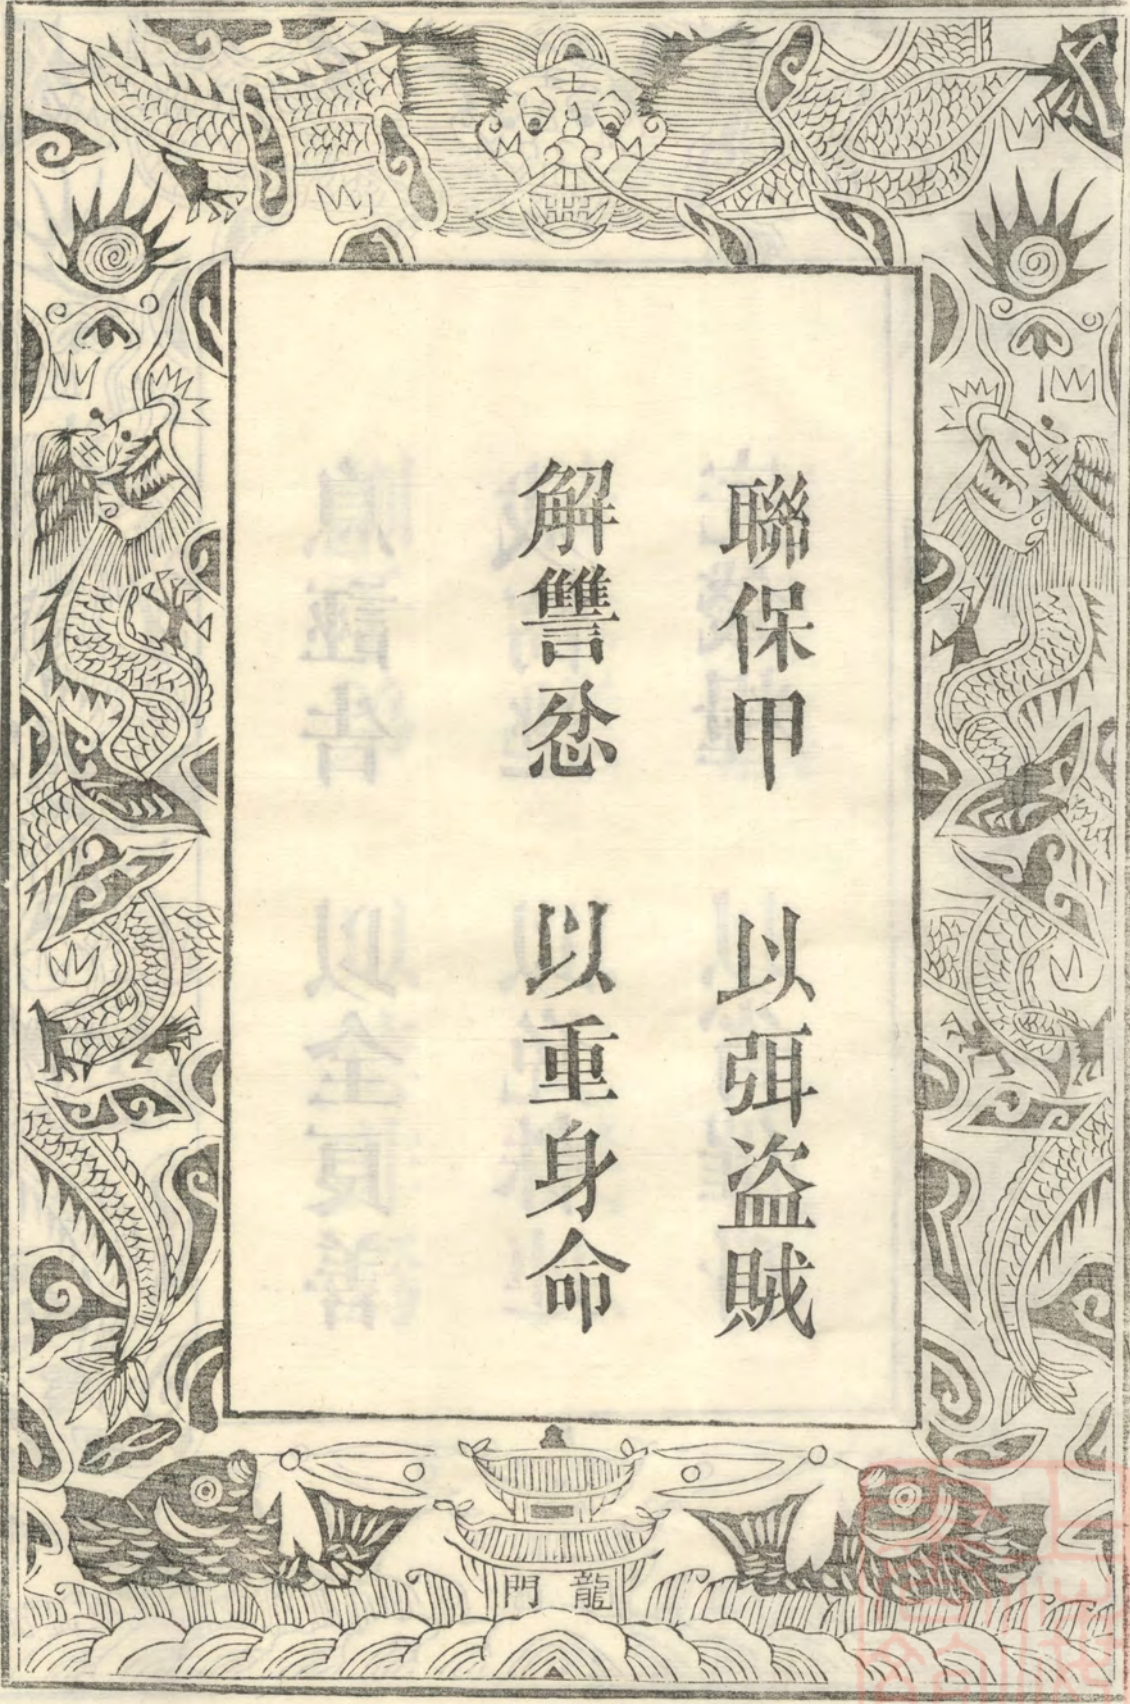 聯保甲　以弭盗賊
解讐忿　以重身命
龍門